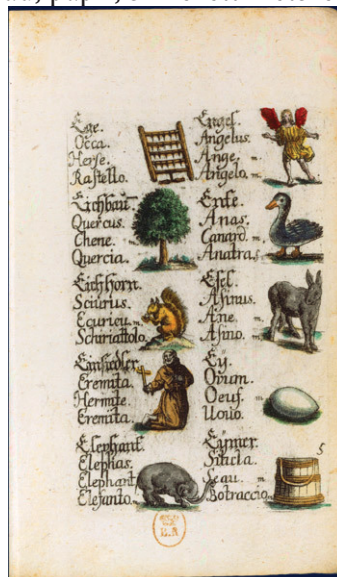 Ege.
Occa.
Herse.
Rastello.
Eichbaũ.
Quercus.
Chene. m
Quercia.
Eichhorn.
Sciurus.
Ecurieu. m
Schiriattolo.
Einsidler.
Eremita.
Hermite.
Eremita.
Elephant.
Elephas.
Elephant
Elefanto.
Engel.
Angelus.
Ange. m
Angelo. m
Ente.
Anas.
Canard. m
Anatra.
Esel.
Asinus.
Ane. m
Asino.
Ey.
Ovum.
Oeuf. m
Uovo.
Eymer.
Situla.
Seau. m
Botraccio
5
B.R